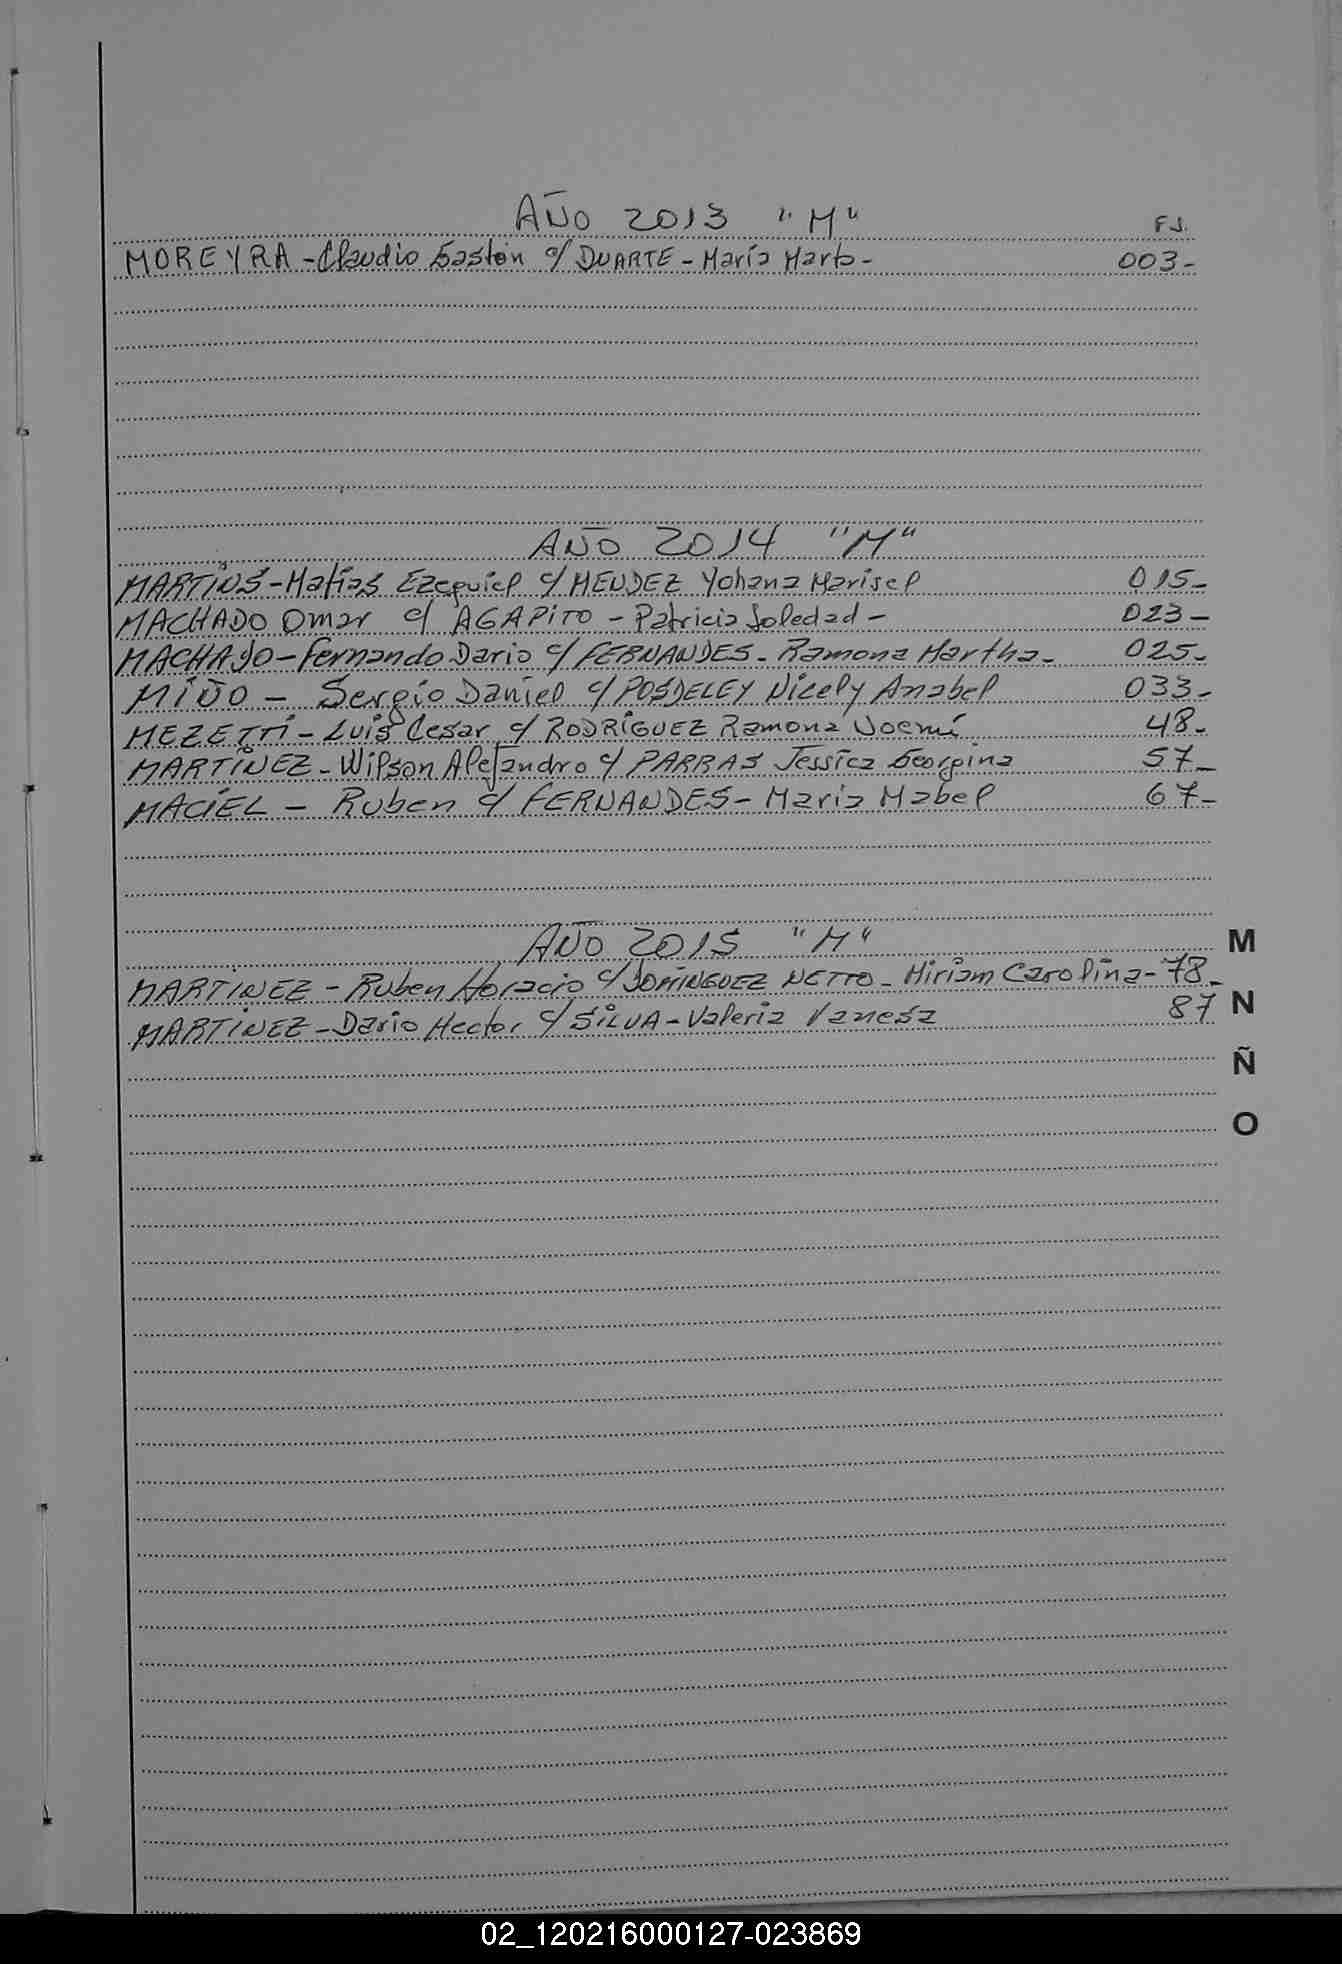 AÑO 2013 "M" FJ.
MOREYRA - Claudio Gastón c/ DUARTE - María Marta - 003-
AÑO 2014 "M"
MARTINS - Matias Ezequiel c/ MENDEZ Yohana Marisel 015-
MACHADO Omar c/ AGAPITO - Patricia Soledad - 023-
MACHADO - Fernando Dario c/ FERNANDES - Ramona Martha - 025-
MIÑO - Sergio Daniel c/ POSDELEY Nicely Anabel 033-
MEZETTI - Luis Cesar c/ RODRIGUEZ Ramona Noemí 48-
MARTINEZ - Wilson Alejandro c/ PARRAS Jessica Georgina 57-
MACIEL - Ruben c/ FERNANDES - Maria Mabel 67-
AÑO 2015 "M"
M
MARTINEZ - Ruben Horacio c/ DOMINGUEZ NETTO - Miriam Carolina - 78-
MARTINEZ - Dario Hector c/ SILVA - Valeria Vanesa 87
N
Ñ
O
02_120216000127-023869